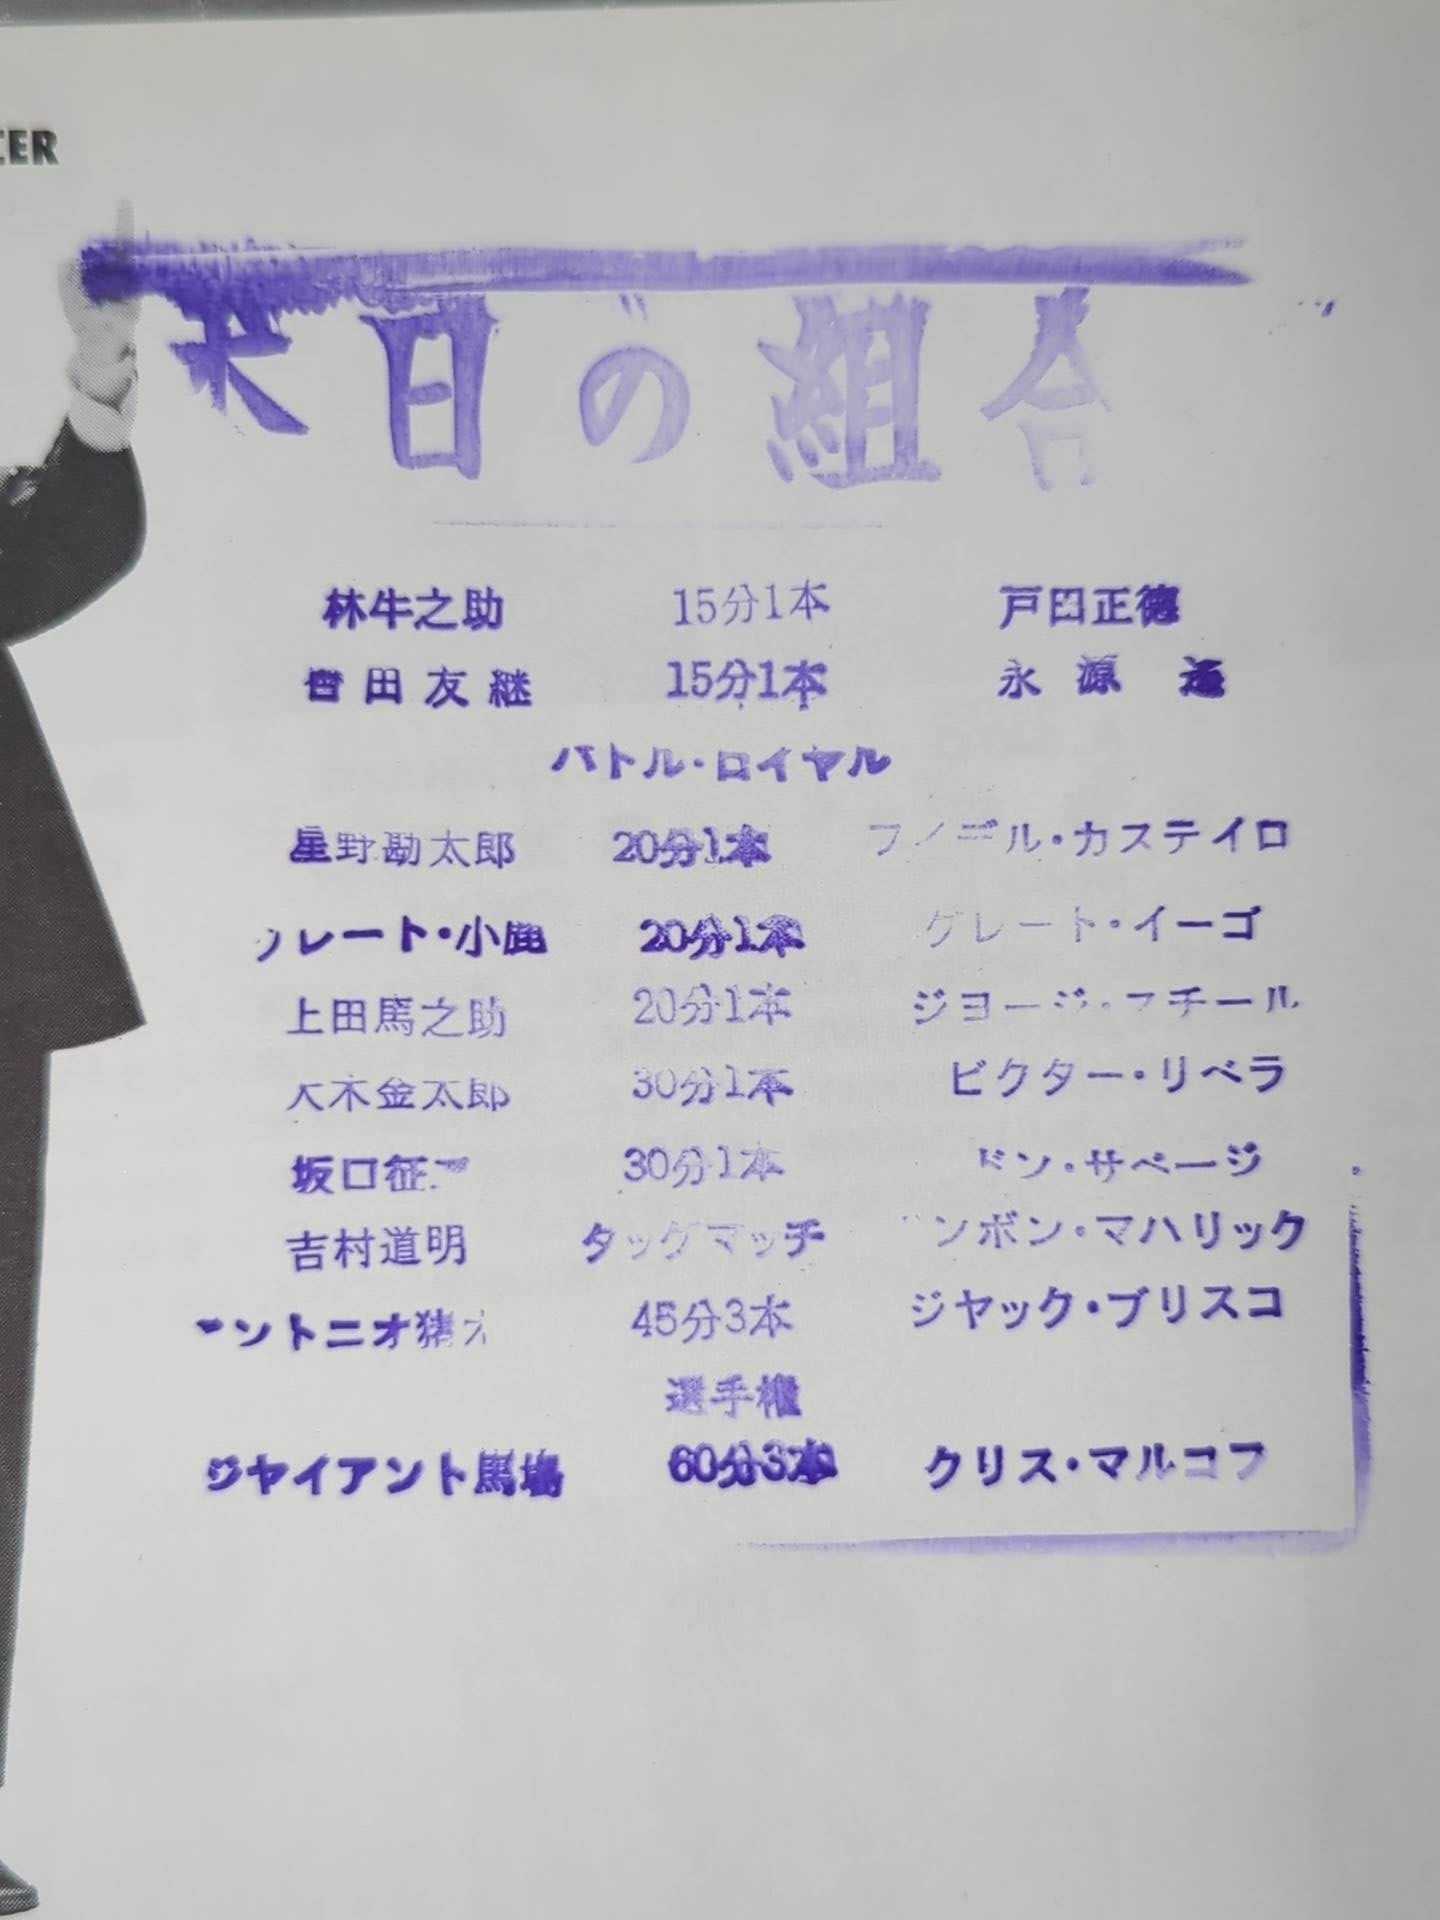 CER
本日の組合
林牛之助 15分1本 戸田正徳
曽田友継 15分1本 永源遙
バトル・ロイヤル
星野勘太郎 20分1本 カステイロ
グレート・小鹿 20分1本 グレート・イーゴ
上田馬之助 20分1本 ジヨージ・スチール
大木金太郎 30分1本 ビクター・リベラ
坂口征二 30分1本 ドン・サベージ
吉村道明 タッグマッチ ボンボン・マハリック
アントニオ猪木 45分3本 ジヤック・ブリスコ
選手権
ジヤイアント馬場 60分3本 クリス・マルコフ